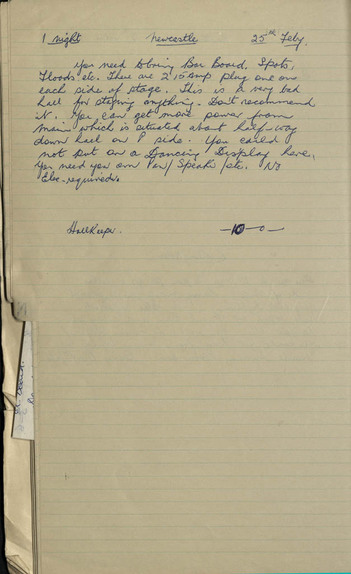 1 night Newcastle 25th Feby.
You need to bring Bar Board, Spots,
Floods etc. There are 2 15 Amp plug one on
each side of stage. This is a very bad
hall for staging anything. Don't recommend
it. You can get more power from
main which is situated about half-way
down hall on P side. You could
not put on a Dancing Display here.
You need your own Pan/Speaker/etc. No
Elec. required.
Hallkeeper. —10—0—